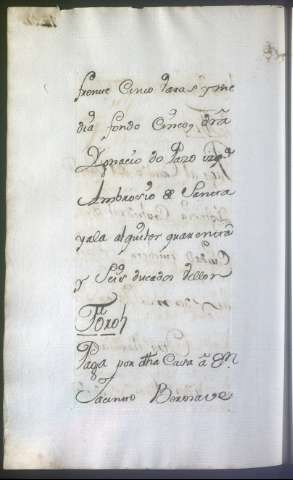 frente Cinco varas y me
dia, fondo Cinco, dra
Ygnacio do Pazo
Ambrosio de Santa
y ala alquiler quarenta
y Seis ducados de vellon
Foros
Paga por dha Casa â Dn
Jacinto